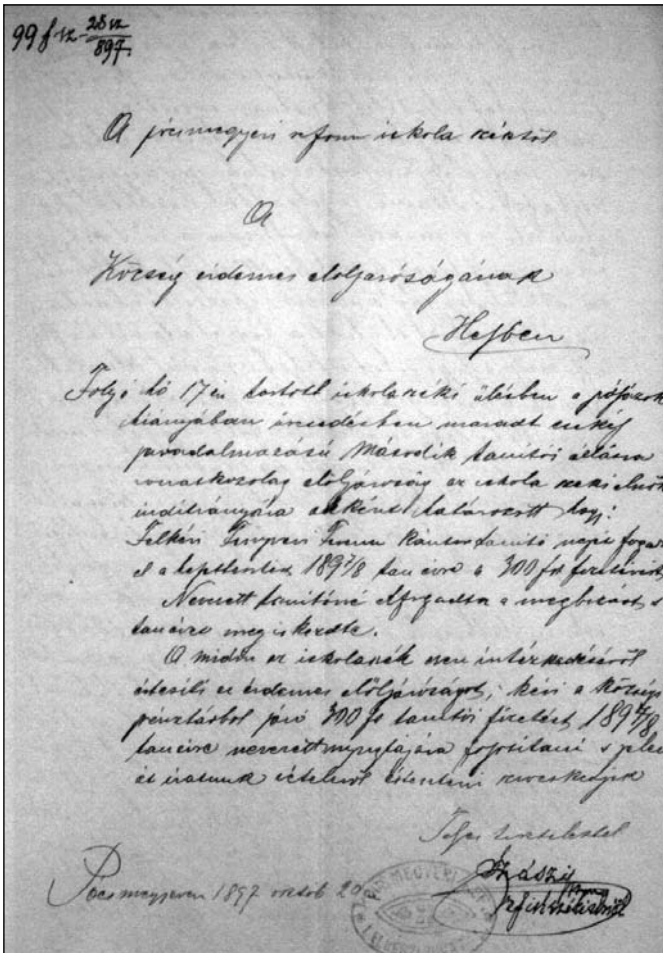 99 f sz - 28 sz
897.
A pócsmegyeri reform iskola széktől
A
Község érdemes elöljáróságának
Helyben
Folyó hó 17 én tartott iskolaszéki ülésben a
hiányában üresedésben maradt
javadalmazású második tanítói állásra
vonatkozólag elöljáróság az iskola szék elnök
indítványára akként határozott hogy:
Felkéri Ferenc kántor tanító nejét
el a 1897/8 tan évre a 300 frt fizetésért
Nevezett tanítónő elfogadta a megbízást s
tanévre meg is kezdte.
A midőn az iskolaszék ezen intézkedéséről
értesíti az érdemes elöljáróságot, kéri a községi
pénztárból járó 300 frt tanítói fizetést 1897/8
tanévre nevezett nyugtájára folyósítani s jelen
át iratunk vételéről értesíteni szíveskedjék
Teljes tisztelettel
Pócsmegyeren 1897 október 20
Szászy